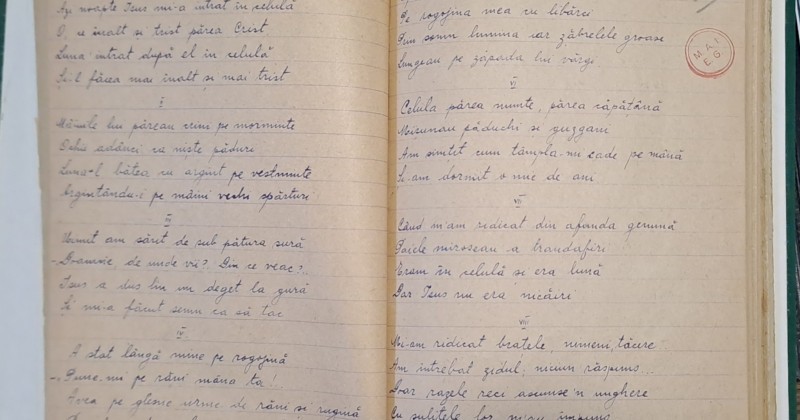 Az' noapte Isus mi-a intrat în celulă
O, ce înalt si trist părea Crist
Luna intrat după el în celulă
Si-l făcea mai înalt și mai trist
II
Mâinile lui păreau crini pe morminte
Ochii adânci ca niște păduri
Luna-l bătea cu argint pe vestminte
Argintându-i pe mâini vechi spărturi
III
Uimit am sărit de sub pătura sură
- Doamne, de unde vii? Din ce veac?
Isus a dus lin un deget la gură
Și mi-a făcut semn ca să tac
IV
A stat lângă mine pe rogojină
- Pune-mi pe răni mâna ta!
Avea pe glesne urme de răni si rugină
Pe rogojina mea cu libărci
Prin somn lumina iar zăbrelele groase
Lungeau pe zăpada lui vărgi
VI
Celula părea munte, părea căpățână
Misunau păduchi si guzgani
Am simtit cum tâmpla-mi cade pe mână
Si-am dormit o mie de ani
VII
Când m'am ridicat din afunda genună
Paiele miroseau a trandafiri
Eram în celulă si era lună
Dar Isus nu era nicăiri
VIII
Mi-am ridicat bratele, nimeni, tăcere!
Am întrebat zidul; niciun răspuns...
Doar razele reci ascunse 'n unghere
Cu sulitele lor
M A I